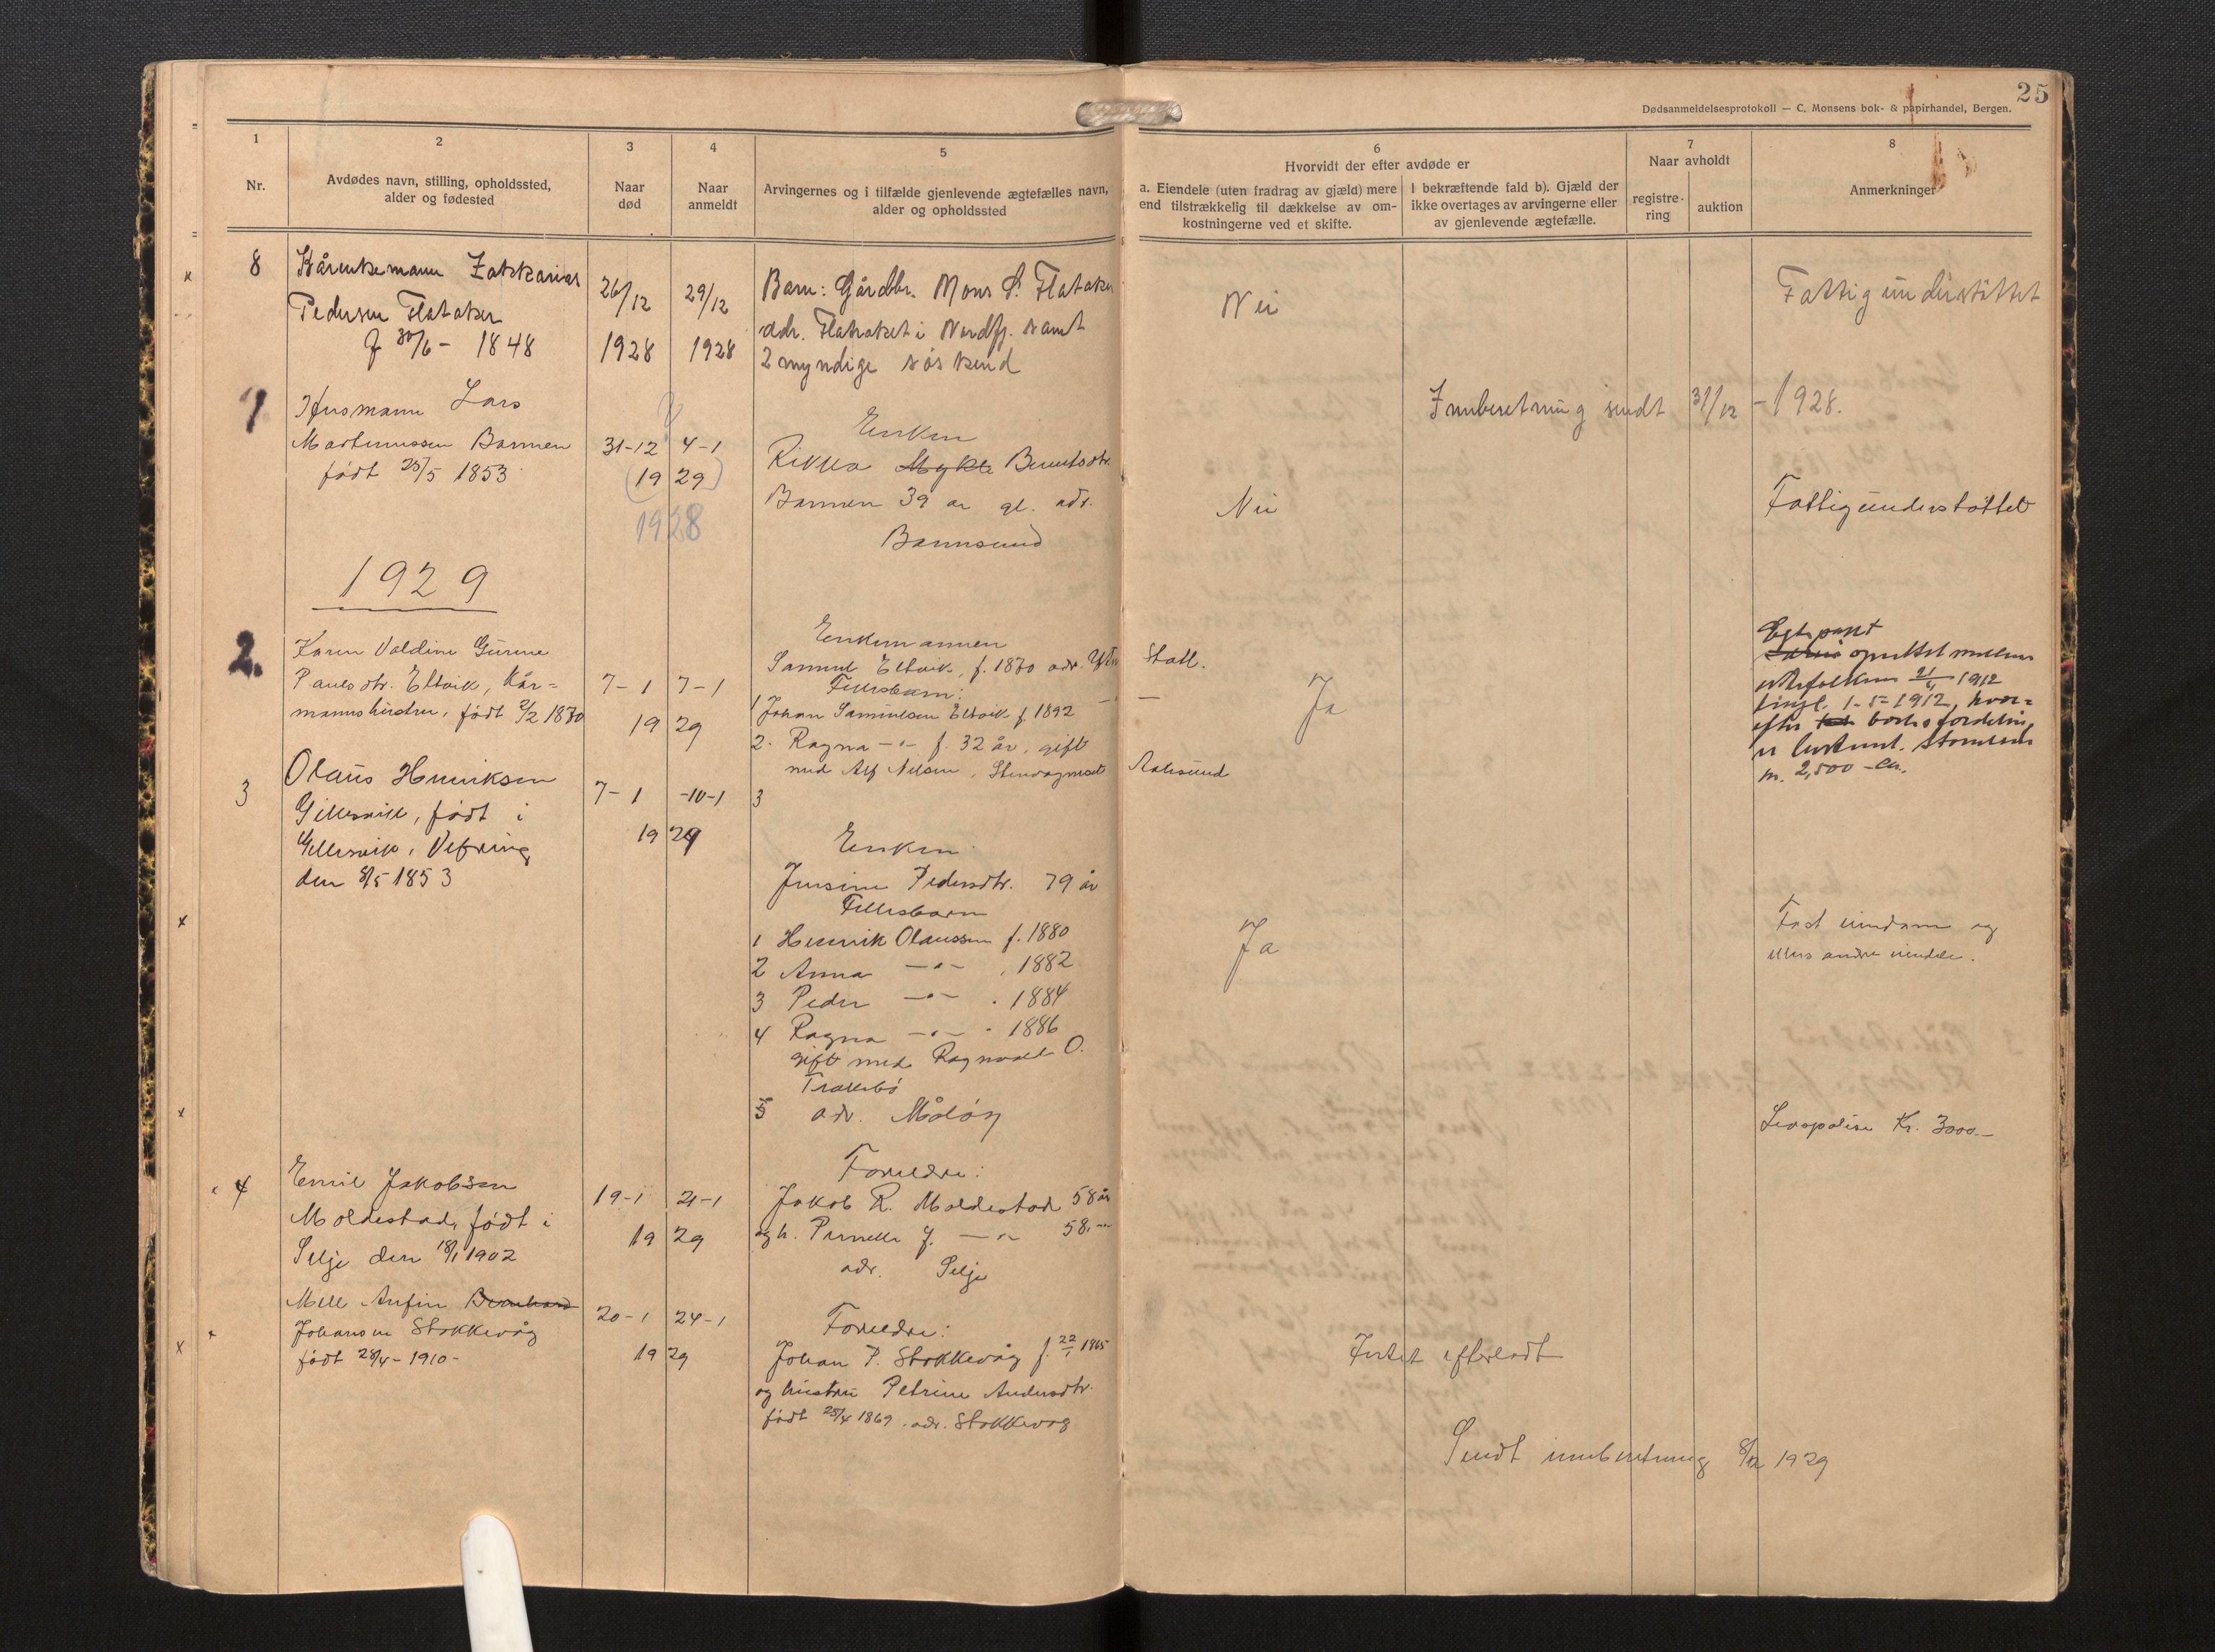 25
Dødsanmeldelsesprotokoll — C. Monsens bok- & papirhandel, Bergen.
1
2
3
4
5
6
7
8
Nr.
Avdødes navn, stilling, opholdssted,
alder og fødested
Naar
død
Naar
anmeldt
Arvingernes og i tilfælde gjenlevende ægtefælles navn,
alder og opholdssted
Hvorvidt der efter avdøde er
a. Eiendele (uten fradrag av gjæld) mere
end tilstrækkelig til dækkelse av om-
kostningerne ved et skifte.
I bekræftende fald b). Gjæld der
ikke overtages av arvingerne eller
av gjenlevende ægtefælle.
Naar avholdt
registre-
ring
auktion
Anmerkninger
8
Kårenkemann Zakkarias
Pedersen Flataker
f 30/6 - 1848
26/12
1928
29/12
1928
Barn: Gårdbr. Mons S. Flataker
adr. Flatraket i Nordfj. samt
2 myndige søskend
Nei
Fattigunderstøttet
Innberetning sendt 31/12 - 1928.
1
Husmann Lars
Martinussen Barmen
født 25/5 1853
31-12
4-1
(19 29)
1928
Enken
Rikka Mykle Berntsdtr.
Barmen 39 år gl. adr.
Barmsund
Nei
Fattigunderstøttet
1929
2.
Karen Valdine Gurine
Paulsdtr. Eltvik, kår-
mannshustru, født 2/2 1870
7-1
7-1
19 29
Enkemannen
Samuel Eltvik, f. 1870 adr. Ytre Statt.
Fellesbarn:
1 Johan Samuelsen Eltvik f. 1892 — —
2. Ragna -"- f. 32 år, gift
med Alf Nilsen, Stenvågneset Aalesund
3
Ja
Egtepakt
opprettet mellem
ektefolkene 21/4 1912
tingl. 1-5-1912, hvor-
efter boets fordeling
er bestemt.
m. 2,500 -
3
Olaus Henriksen
Gillesvik, født i
Gillesvik, Vefring
den 8/5 1853
7-1
-10-1
19 29
Enken
Jensine Pedersdtr. 79 år
Fellesbarn
1 Henrik Olaussen f. 1880
2 Anna -"- . 1882
3 Peder -"- . 1884
4 Ragna -"- . 1886
gift med Ragnvald O.
Trallebø
5 adr. Måløy
Ja
Fast eiendom og
ellers andre eiendele.
Livspolise Kr. 3000.-
4
Emil Jakobsen
Moldestad, født i
Selje den 18/1 1902
19-1
21-1
19 29
Foreldre:
Jakob R. Moldestad 58 år
og h. Pernelle J. -"- 58.-"-
adr. Selje
Mell Anfin Bernhard
Johansen Stokkevåg
født 28/4 - 1910 -
20-1
24-1
19 29
Foreldre:
Johan P. Stokkevåg f. 22/1 1865
og hustru Petrine Andersdtr.
født 25/4 1869. adr. Stokkevåg
Intet efterladt
Sendt innberetning 8/12 1929